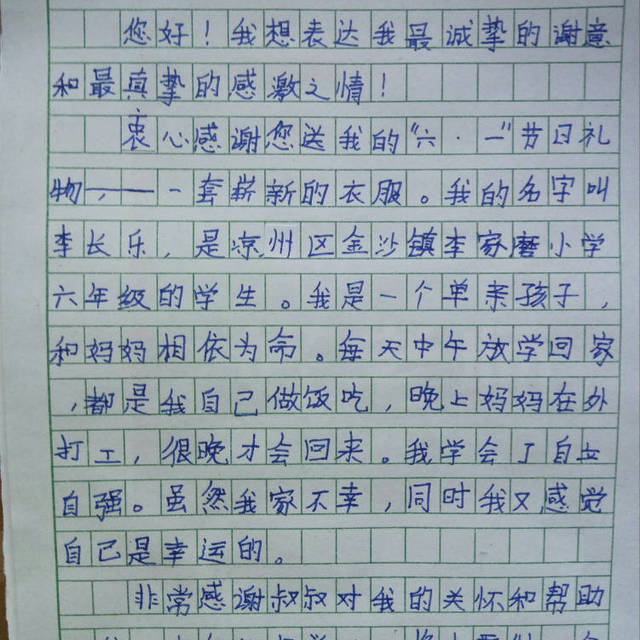 您好！我想表达我最诚挚的谢意
和最真挚的感激之情！
衷心感谢您送我的“六·一”节日礼
物，——一套崭新的衣服。我的名字叫
李长乐，是凉州区金沙镇李家磨小学
六年级的学生。我是一个单亲孩子，
和妈妈相依为命。每天中午放学回家
，都是我自己做饭吃，晚上妈妈在外
打工，很晚才会回来。我学会了自立
自强。虽然我家不幸，同时我又感觉
自己是幸运的。
非常感谢叔叔对我的关怀和帮助